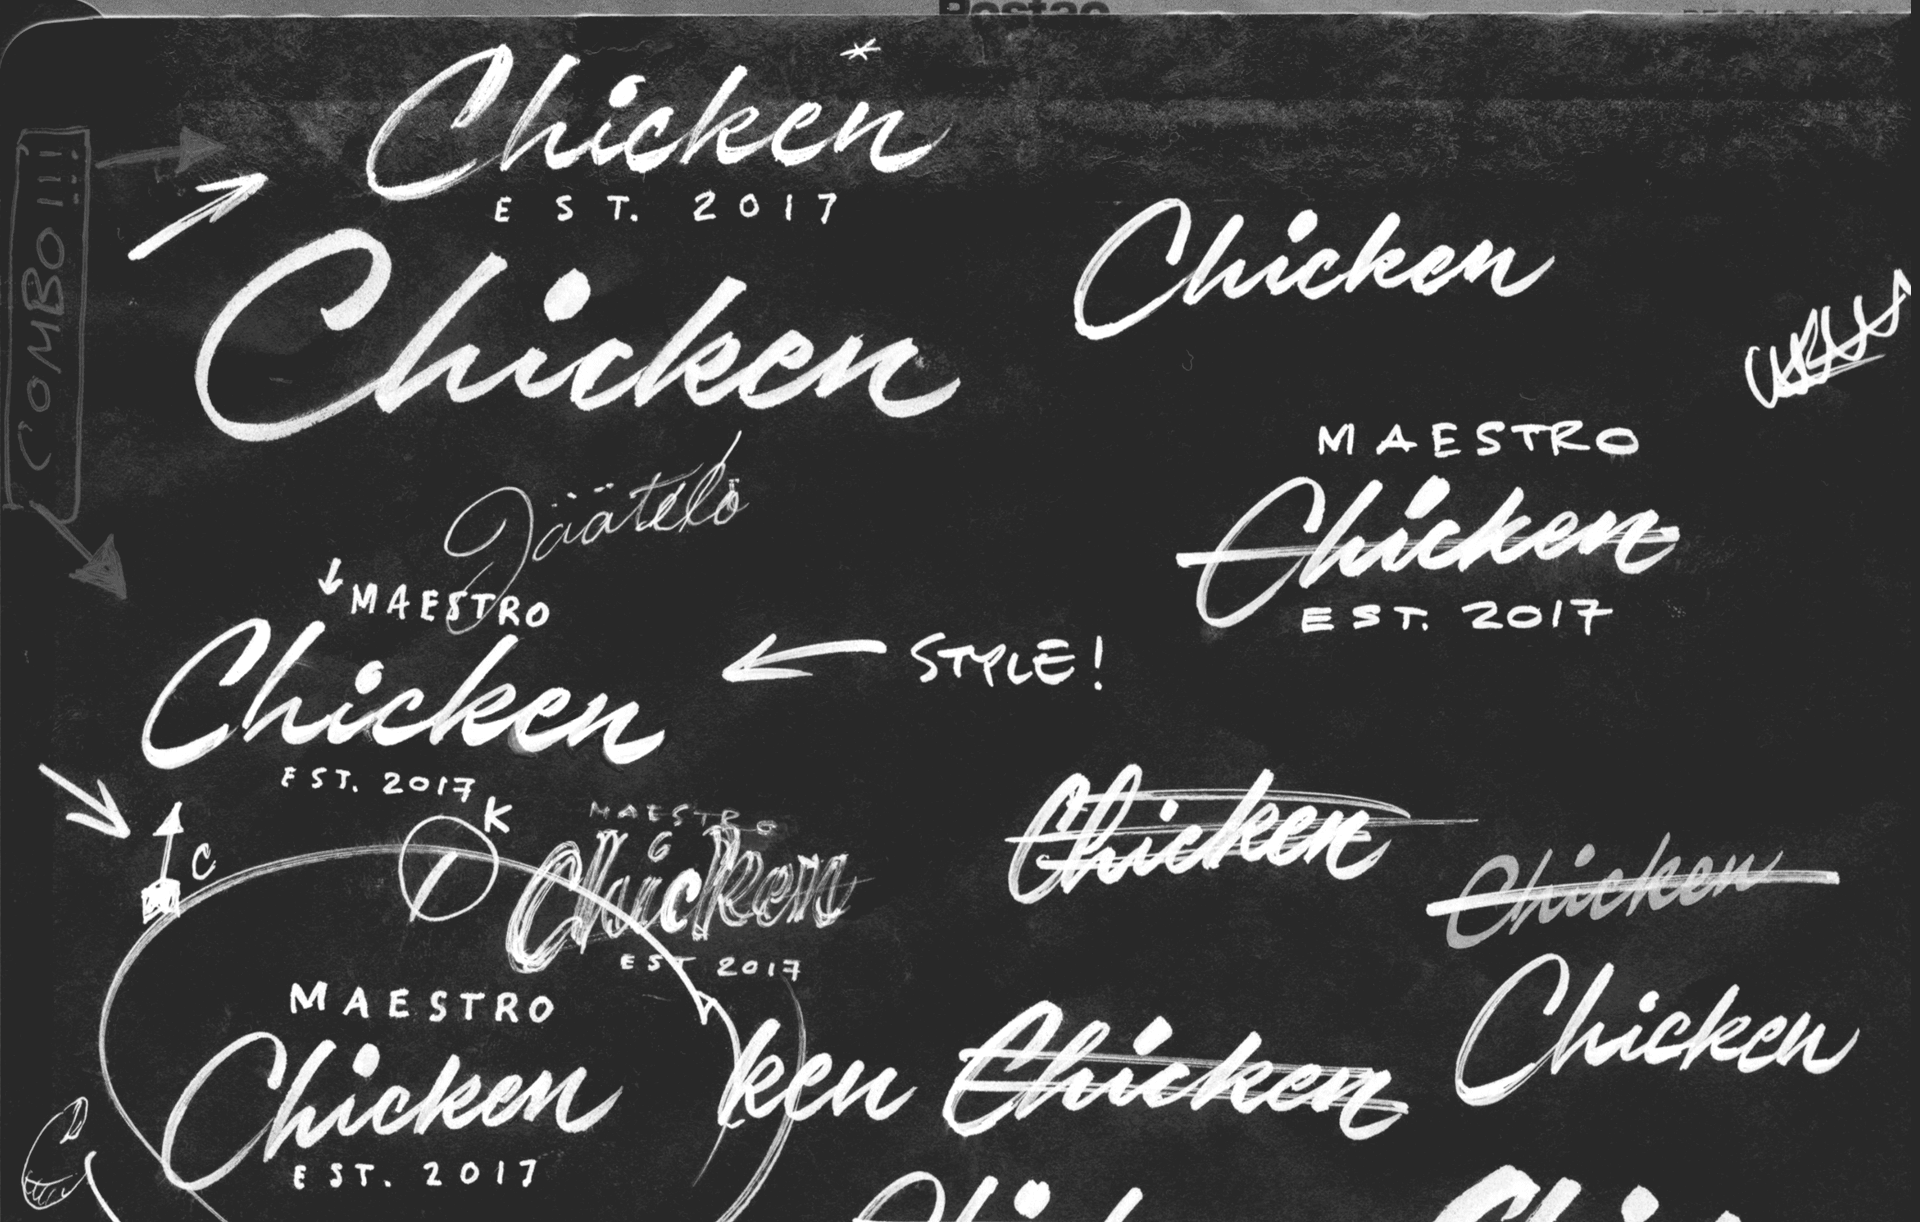 Chicken *
EST. 2017
Chicken
Chicken
COMBO!!!
MAESTRO
Chicken
EST. 2017
Jäätelö
MAESTRO
Chicken
EST. 2017
STYLE!
K
C
MAESTRO
Chicken
EST 2017
Chicken
Chicken
Chicken
MAESTRO
Chicken
EST. 2017
ken
Chicken
C